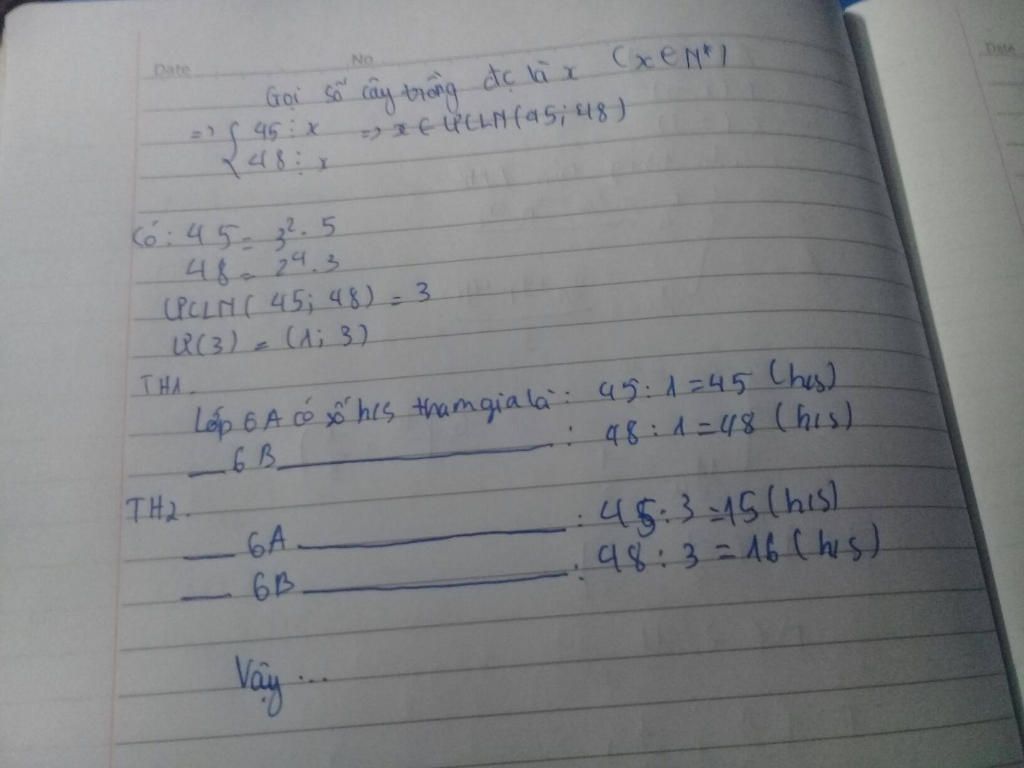 Date No
Date
Gọi số cây trồng đc là x (x ∈ N*)
=> { 45 ⋮ x => x ∈ ƯCLN(45; 48)
48 ⋮ x
Có: 45 = 3². 5
48 = 2⁴. 3
ƯCLN( 45; 48) = 3
Ư(3) = (1; 3)
TH1.
Lớp 6A có số h/s tham gia là : 45 : 1 = 45 (h/s)
__ 6B ________ : 48 : 1 = 48 (h/s)
TH2.
__ 6A ________ : 45 : 3 = 15 (h/s)
__ 6B ________ : 48 : 3 = 16 (h/s)
Vậy ...